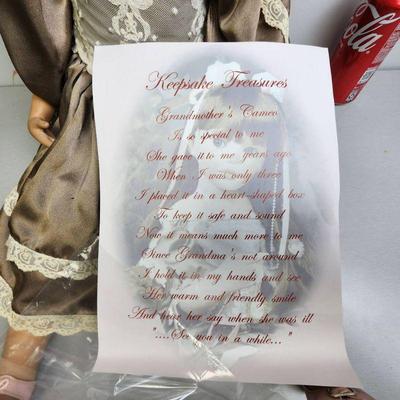 Keepsake Treasures
Grandmother's Cameo
Is so special to me
She gave it to me years ago
When I was only three
I placed it in a heart-shaped box
To keep it safe and sound
Now it means much more to me
Since Grandma's not around
I hold it in my hands and see
Her warm and friendly smile
And hear her say when she was ill
"....See you in a while..."
Cola